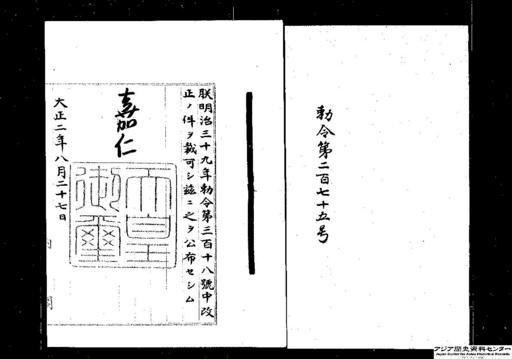 勅令第二百七十五号
朕明治三十九年勅令第三百十八號中改
正ノ件ヲ裁可シ玆ニ之ヲ公布セシム
嘉仁
天皇
御璽
大正二年八月二十七日
アジア歴史資料センター
Japan Center for Asian Historical Records